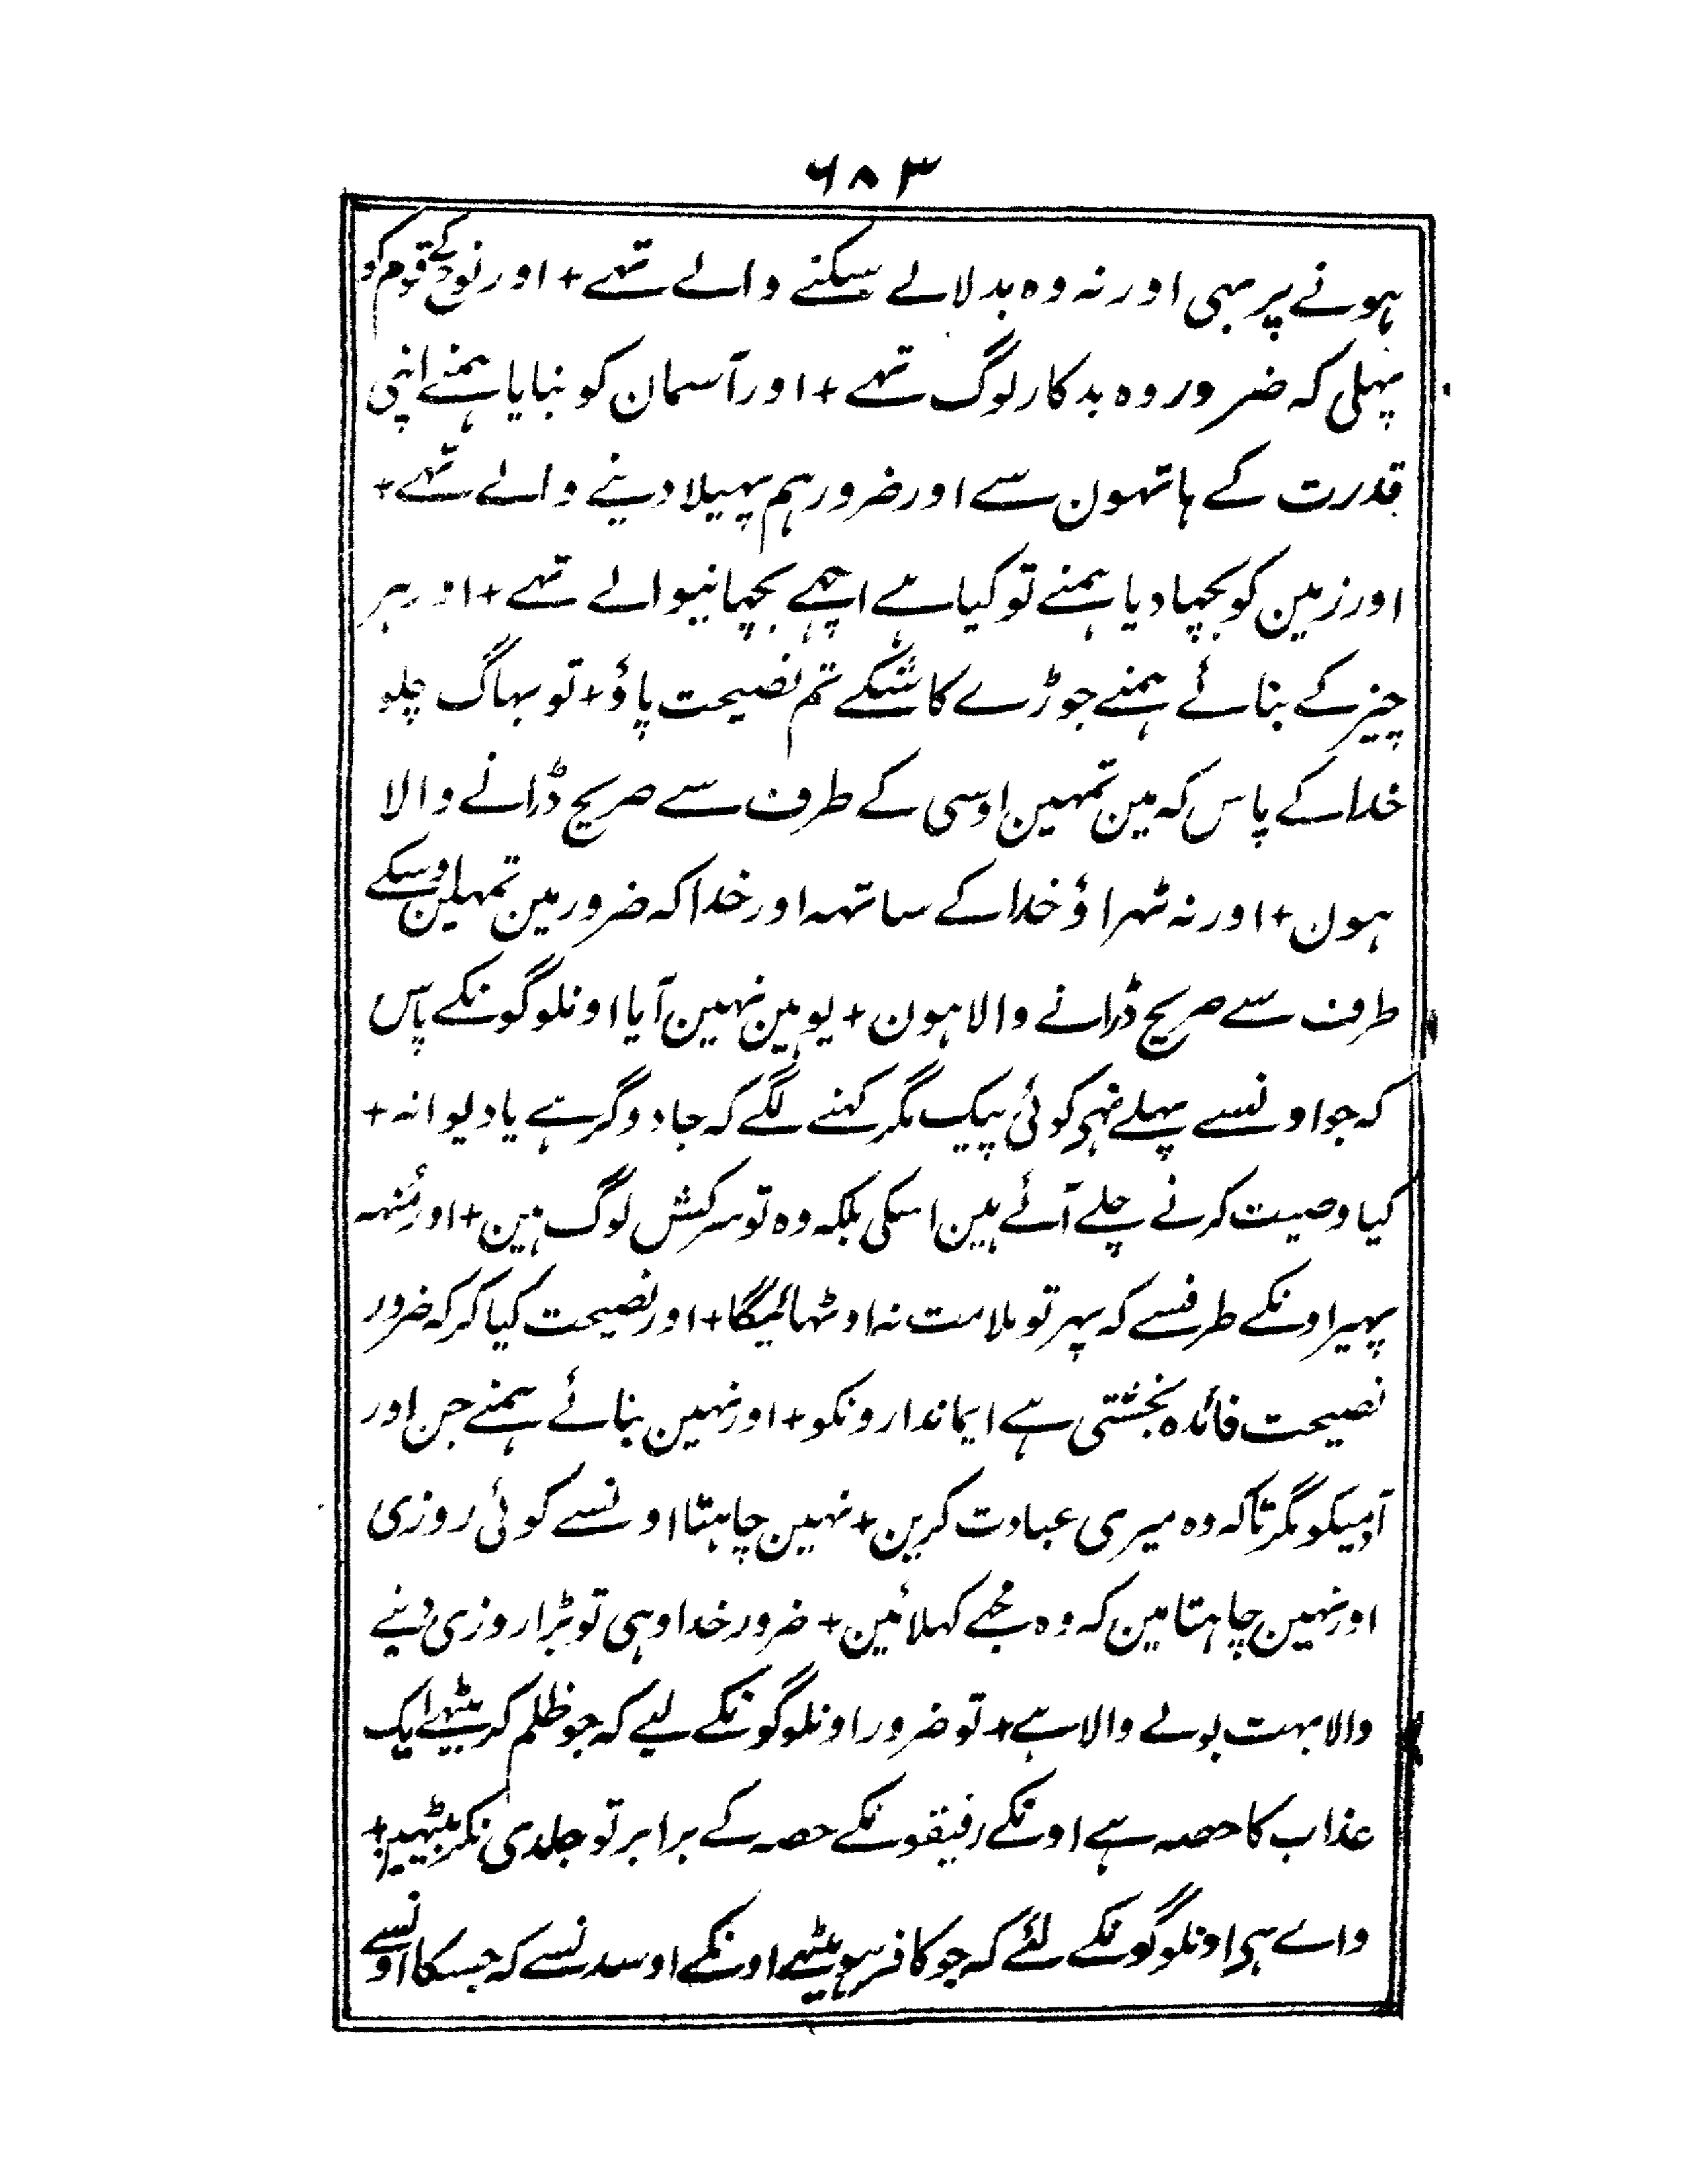 ۶۸۳
ہونے پر بہی اور نہ وہ بدلا لے سکنے والے تہے + اور نوح کے قوم کو
پہلی کہ ضرور وہ بدکار لوگ تہے + اور آسمان کو بنایا ہمنے اپنی
قدرت کے ہاتہون سے اور ضرور ہم پہیلا دینے والے تہے +
اور زمین کو بچہا دیا ہمنے تو کیا ہے اچہے بچہانیوالے تہے + اور ہر
چیز کے بنائے ہمنے جوڑے کاشکے تم نصیحت پاؤ + تو بہاگ چلو
خدا کے پاس کہ مین تمہین اوسی کے طرف سے صریح ڈرانے والا
ہون + اور نہ ٹہراؤ خدا کے ساتہہ اور خدا کہ ضرور مین تمہین اوسکے
طرف سے صریح ڈرانے والا ہون + یوہین نہین آیا اونلوگونکے پاس
کہ جو اونسے پہلے تہی کوئی پیک مگر کہنے لگے کہ جادوگر ہے یا دیوانہ +
کیا وصیت کرنے چلے آئے ہین اسکی بلکہ وہ تو سرکش لوگ ہین + اور مُنہہ
پہیر اونکے طرفسے کہ پہر تو ملامت نہ اوٹہائیگا + اور نصیحت کیا کر کہ ضرور
نصیحت فائدہ بخشتی ہے ایماندارونکو + اور نہین بنائے ہمنے جن اور
آدمیکو مگر تاکہ وہ میری عبادت کرین + نہین چاہتا اونسے کوئی روزی
اور نہین چاہتا مین کہ وہ مجہے کہلائین + ضرور خدا وہی تو بڑا روزی دینے
والا بہت بولے والا ہے + تو ضرور اونلوگونکے لیے کہ جو ظلم کر بیٹہے ایک
عذاب کا حصہ ہے اونکے رفیقونکے حصہ کے برابر تو جلدی نکر بیٹہین +
واے ہی اونلوگونکے لئے کہ جو کافر ہو بیٹہے اونکے اوسدنسے کہ جسکا اونسے